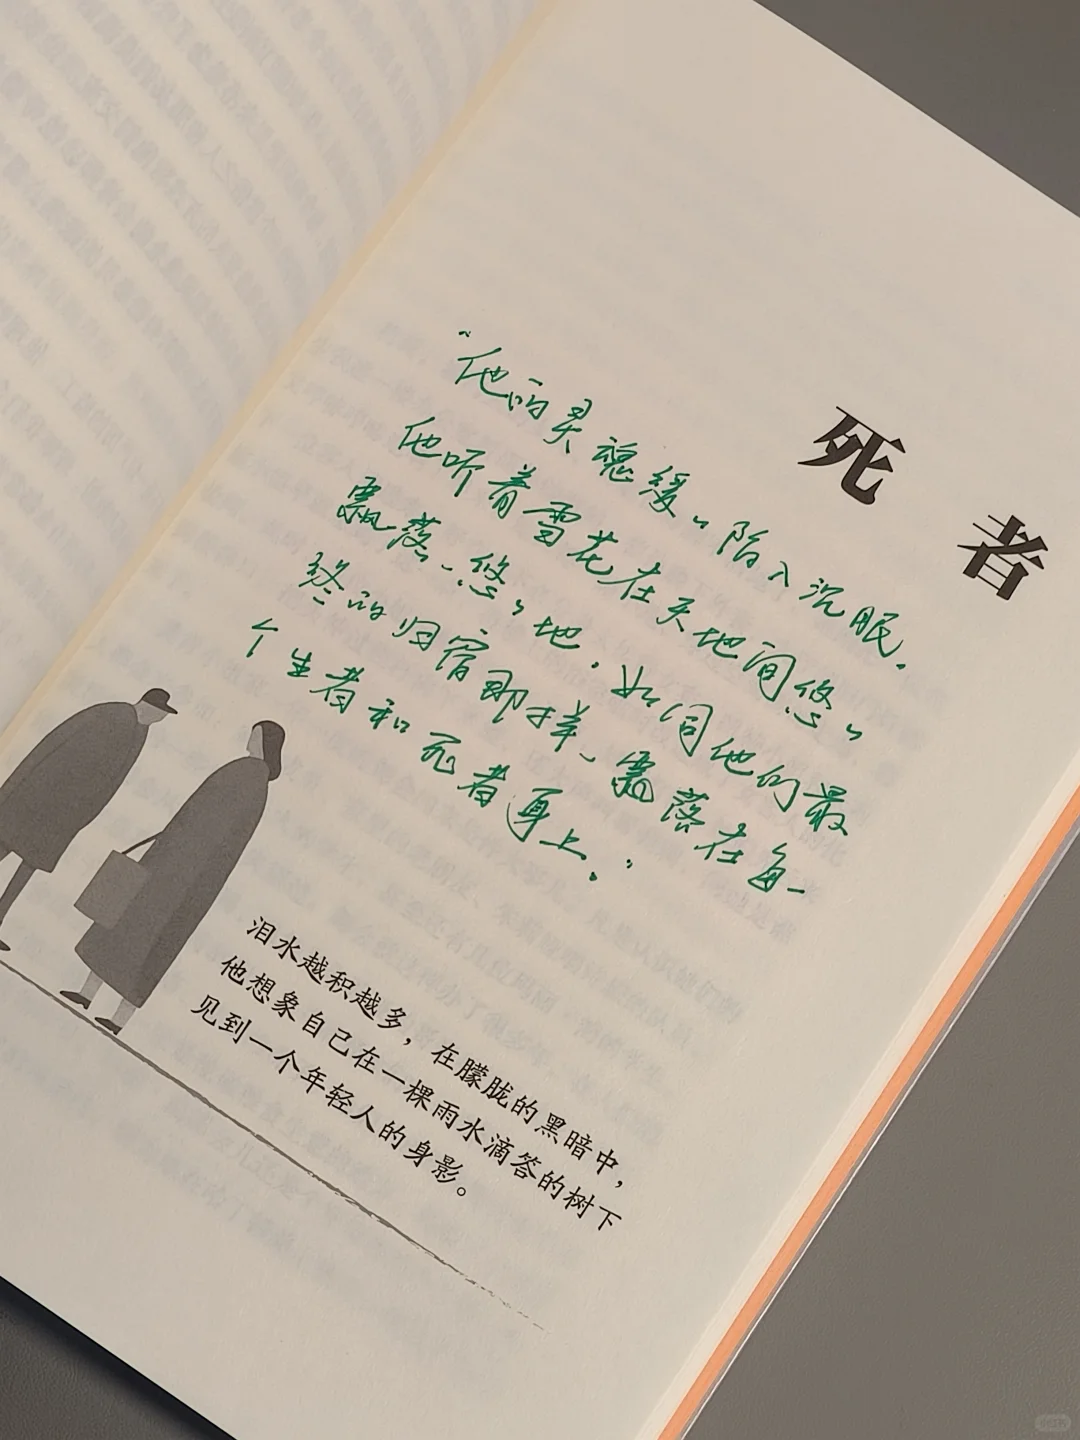 死者
“他的灵魂缓〻陷入沉眠.
他听着雪花在天地间悠〻
飘落、悠〻地.如同他们最
终的归宿那样、飘落在每一
个生者和死者身上.”
泪水越积越多，在朦胧的黑暗中，
他想象自己在一棵雨水滴答的树下
见到一个年轻人的身影。